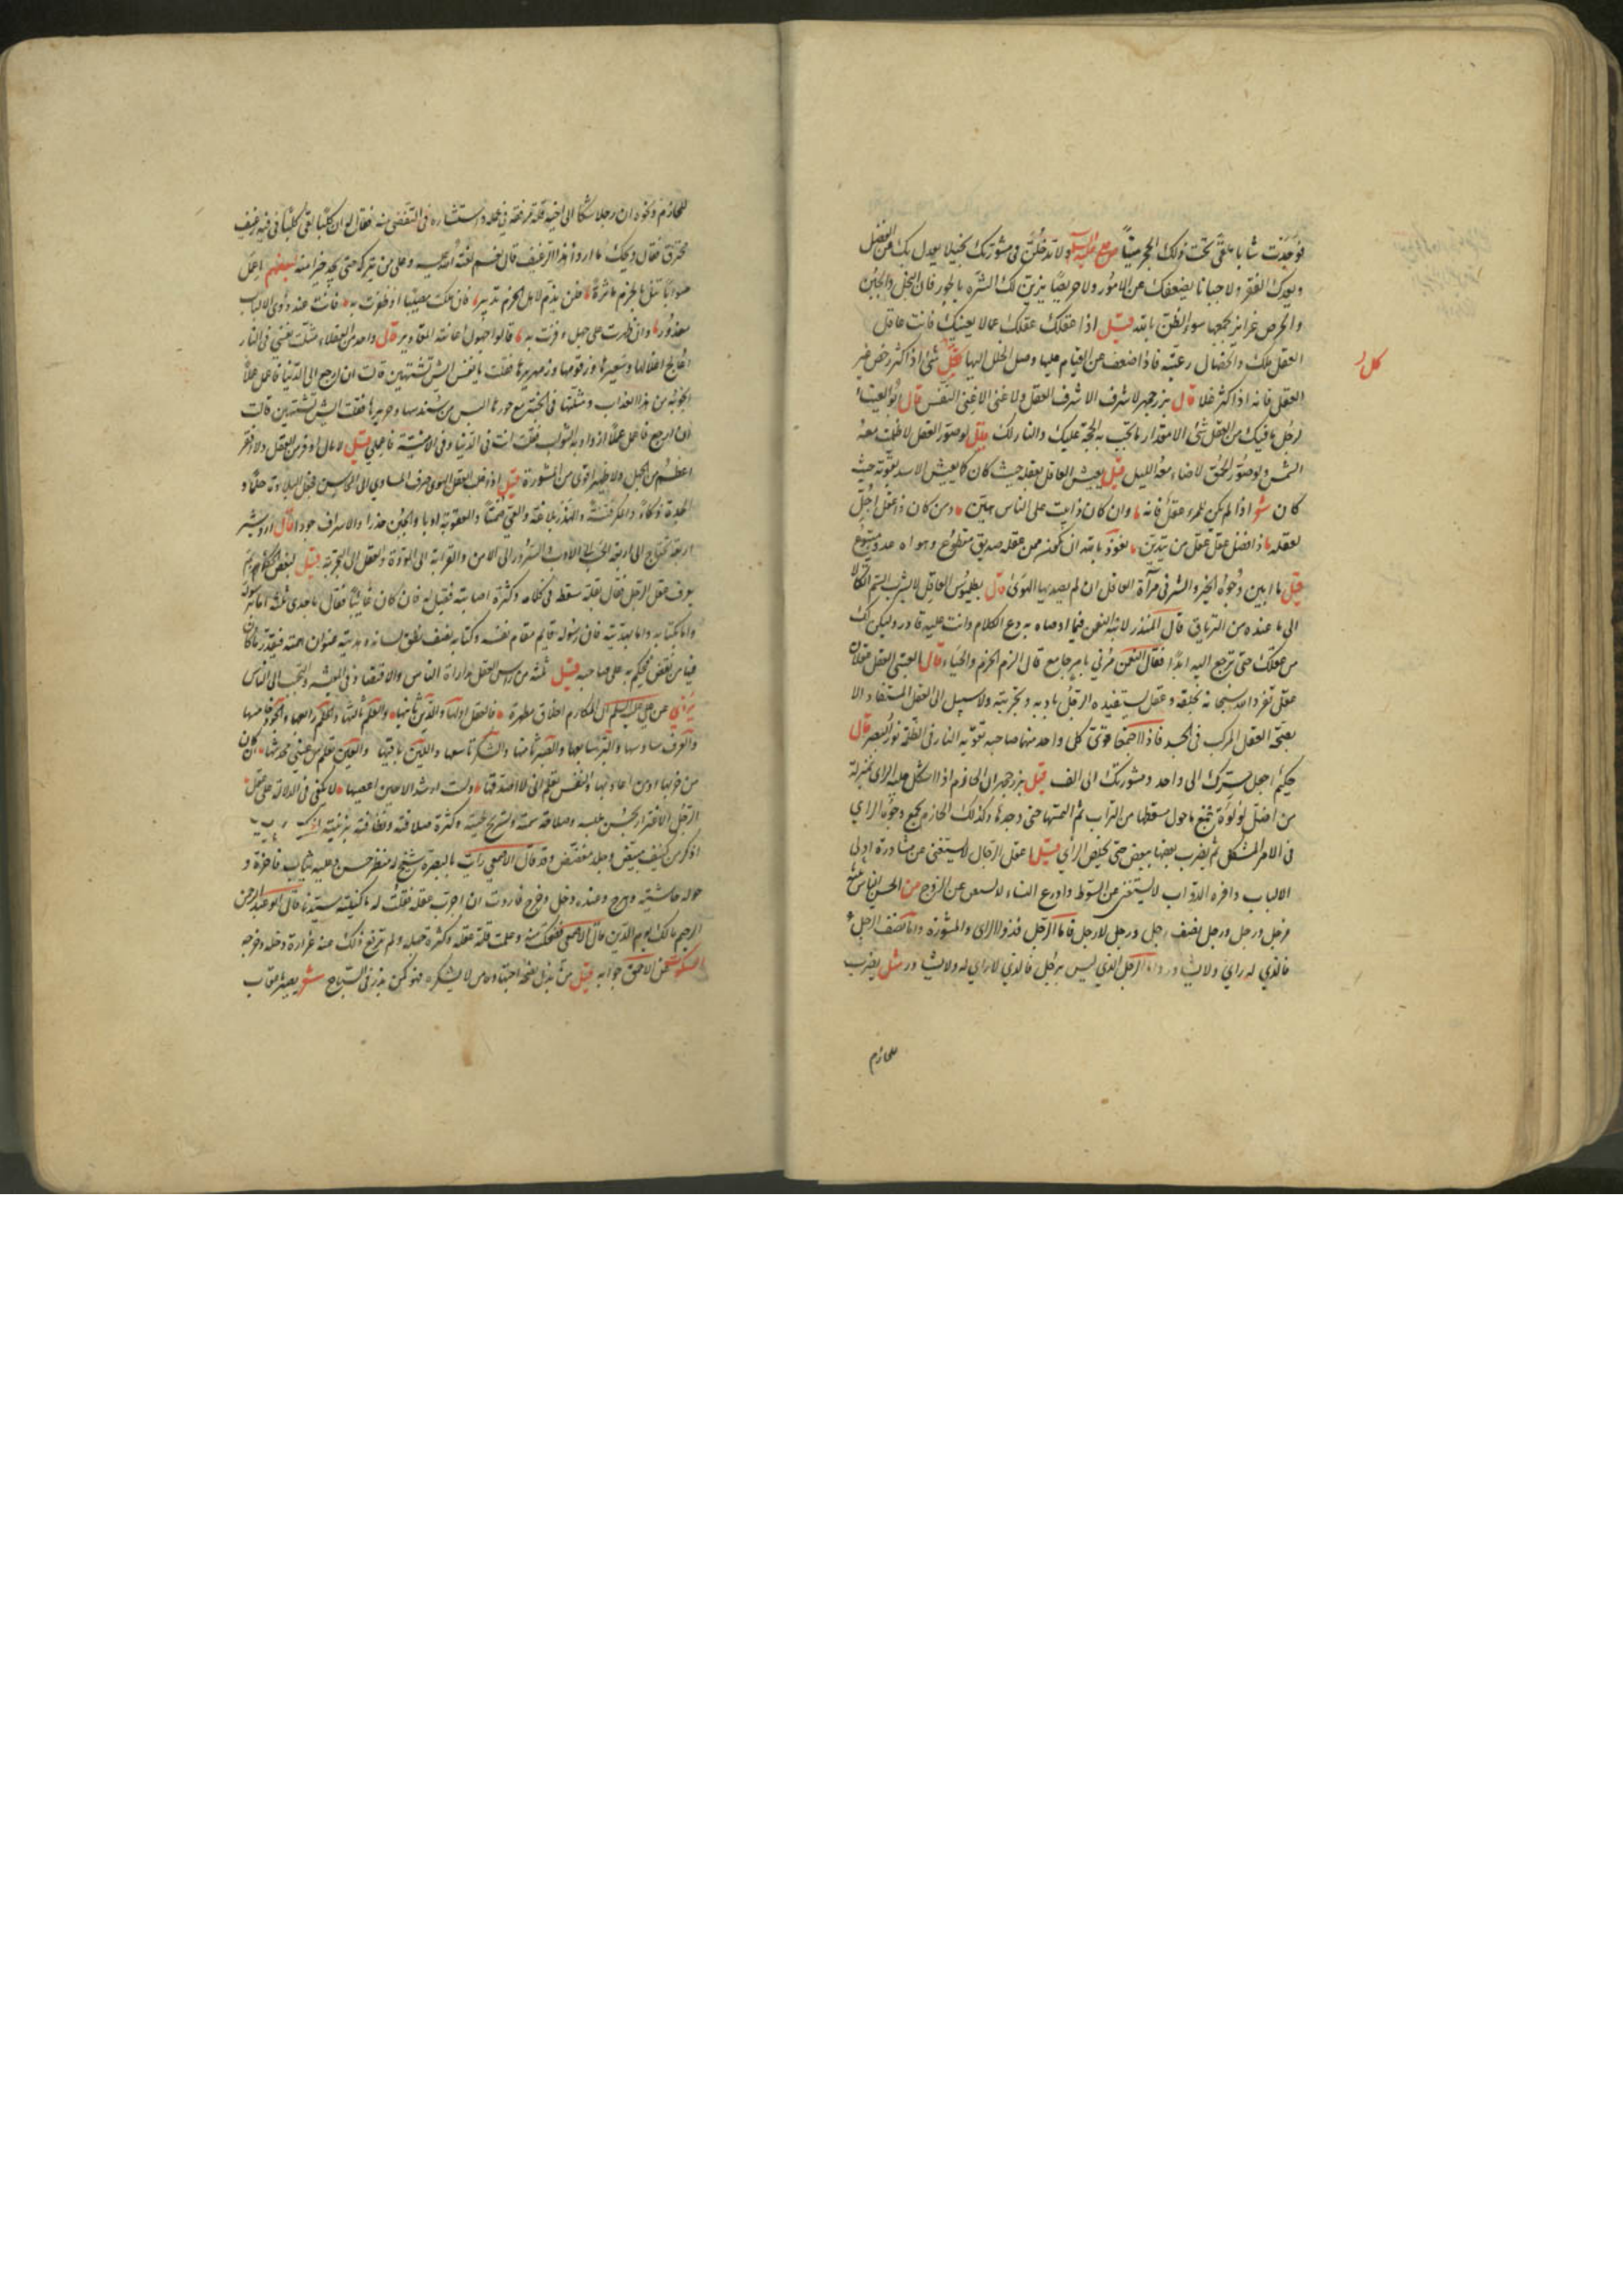 فوجدت شابا ملقى تحت ذلك الحجر ميتا ولا تدخلن في مشورتك بخيلا يعدل بك عن الفضل
ويعدك الفقر ولا جبانا يضعفك عن الامور ولا حريصا يزين لك الشره بالجور فان البخل والجبن
والحرص غرايز يجمعها سوء الظن بالله قيل اذا عقلك عقلك عما لا يعنيك فانت عاقل
كل
العقل ملك والخصال رعيته فاذا ضعف عن القيام عليها وصل الخلل اليها كل شئ اذا كثر رخص غير
العقل فانه اذا كثر غلا قال بزرجمهر لا شرف الا شرف العقل ولا غنى الا غنى النفس قال ابو العيناء
لرجل ما فيك من العقل شئ الا مقدار ما تجب به الحجة عليك والنار لك قيل لو صور العقل لاظلمت معه
الشمس ولو صور الحمق لاضاء معه الليل قيل يعيش العاقل بعقله حيث كان كما يعيش الاسد بقوته حيث
كان شعر اذا لم يكن للمرء عقل فانه وان كان ذا بيت على الناس هين ومن كان ذا عقل اجل
لعقله وافضل عقل عقل من يتدين نعوذ بالله ان نكون ممن عقله صديق مقطوع وهواه عدو متبوع
قيل ما ابين وجوه الخير والشر في مرآة العاقل ان لم يصدها الهوى قال بطلميوس العاقل لا يشرب السم اتكالا
الى ما عنده من الترياق قال المنذر لابنه النعمن فيما اوصاه به دع الكلام وانت عليه قادر وليكن لك
من عقلك حتى ترجع اليه ابدا فقال النعمن مرني بامر جامع قال الزم الحزم والحياء قال العتبي العقل عقلان
عقل تفرد الله سبحانه بخلقه وعقل يستفيده الرجل بادبه وتجربته ولا سبيل الى العقل المستفاد الا
بصحة العقل المركب في الجسد فاذا اجتمعا قوى كل واحد منهما صاحبه تقوية النار في الظلمة نور البصر قال
حكيم اجعل سرك الى واحد ومشورتك الى الف قيل بزرجمهر ان الحازم اذا اشكل عليه الراي بمنزلة
من اضل لؤلؤة فجمع ما حول مسقطها من التراب ثم التمسها حتى وجدها وكذلك الحازم يجمع وجوه الراي
في الامر المشكل ثم يضرب بعضها ببعض حتى يخلص الراي قيل اعقل الرجال لا يستغني عن مشاورة اولي
الالباب وافره الدواب لا يستغني عن السوط واورع النساء لا عن الزوج من الحسن الناس ثلثة
فرجل رجل ورجل نصف رجل ورجل لا رجل فاما الرجل فذو الراي والمشورة واما نصف الرجل
فالذي له راي ولا يشاور واما الرجل الذي ليس برجل فالذي لا راي له ولا يشاور مثل يضرب
للحازم
للحازم ونحوه ان رجلا شكا الى اخيه قلة مرفقه في عمله واستشاره في التفصي منه فقال له ان كلبا لقي كلبا في فيه رغيف
محترق فقال ويحك ما اردأ هذا الرغيف قال نعم لعنه الله وعلى من يتركه حتى يجد خيرا منه لبعضهم اعمل
صوابا تنل بالحزم ماثرة فلن يذم لاهل الحزم تدبير فان هلكت مصيبا او ظفرت به فانت عند ذوي الالباب
معذور وان ظفرت على جهل وفزت به قالوا جهول اعانته المقادير قال واحد من العقلاء مثلت نفسي في النار
اعالج اغلالها وسعيرها وزقومها وزمهريرها فقلت يا نفس ايش تشتهين قالت ان ارجع الى الدنيا فاعمل عملا
انجو به من هذا العذاب ومثلتها في الجنة مع حورها البس من سندسها وحريرها فقلت ايش تشتهين قالت
ان ارجع فاعمل عملا ازداد به الثواب فقلت انت في الدنيا وفي الامنية فاعملي قيل لا مال اوفر من العقل ولا فقر
اعظم من الجهل ولا ظهير اقوى من المشورة قيل اذا غلب العقل الهوى صرف المساوي الى المحاسن فجعل البلادة حلما و
الحدة ذكاء والمكر فطنة والهذر بلاغة والعي صمتا والعقوبة ادبا والجبن حذرا والاسراف جودا قال اردشير
اربعة تحتاج الى اربعة الحسب الى الادب والسرور الى الامن والقرابة الى المودة والعقل الى التجربة قيل لبعض الحكماء بم
يعرف عقل الرجل فقال بقلة سقطه في كلامه وكثرة اصابته فقيل له فان كان غائبا فقال باحدى ثلثة اما برسوله
واما بكتابه واما بهديته فان رسوله قايم مقام نفسه وكتابه يصف نطق لسانه وهديته عنوان همته فبقدر ما كان
فيها من نقص فيحكم به على صاحبه قيل ثلثة من رؤس العقل مداراة الناس والاقتصاد في المعيشه والتحبب الى الناس
يروي عن علي عليه السلم ان المكارم اخلاق مطهرة فالعقل اولها والدين ثانيها والعلم ثالثها والحلم رابعها والجود خامسها
والعرف سادسها والبر سابعها والصبر ثامنها والشكر تاسعها واللين باقيها والعين تعلم من عيني محدثها ان كان
من حزبها او من اعاديها والنفس تعلم اني لا اصدقها ولست ارشد الا حين اعصيها لا تكتفى في الدلالة على عقل
الرجل الاغترار بحسن ملبسه وملاحة سمته وتسريح لحيته وكثرة صلافته ونظافة بزته
اذ كم من كنيف مبيض وجلد مفضض وقد قال الاصمعي رايت بالبصرة شيخ له منظر حسن وعليه ثياب فاخرة و
حوله حاشية وهرج وعنده دخل وخرج فاردت ان اجرب عقله فقلت له ما كنية سيدنا قال ابو عبد الرحمن
الرحيم مالك يوم الدين قال الاصمعي فضحكت منه وعلمت قلة عقله وكثرة جهله ولم يدفع ذلك عنه غزارة دخله وخرجه
السكوت عن الاحمق جوابه قيل من لا يشكره فهو كمن بذر في السباخ شعر يصيب